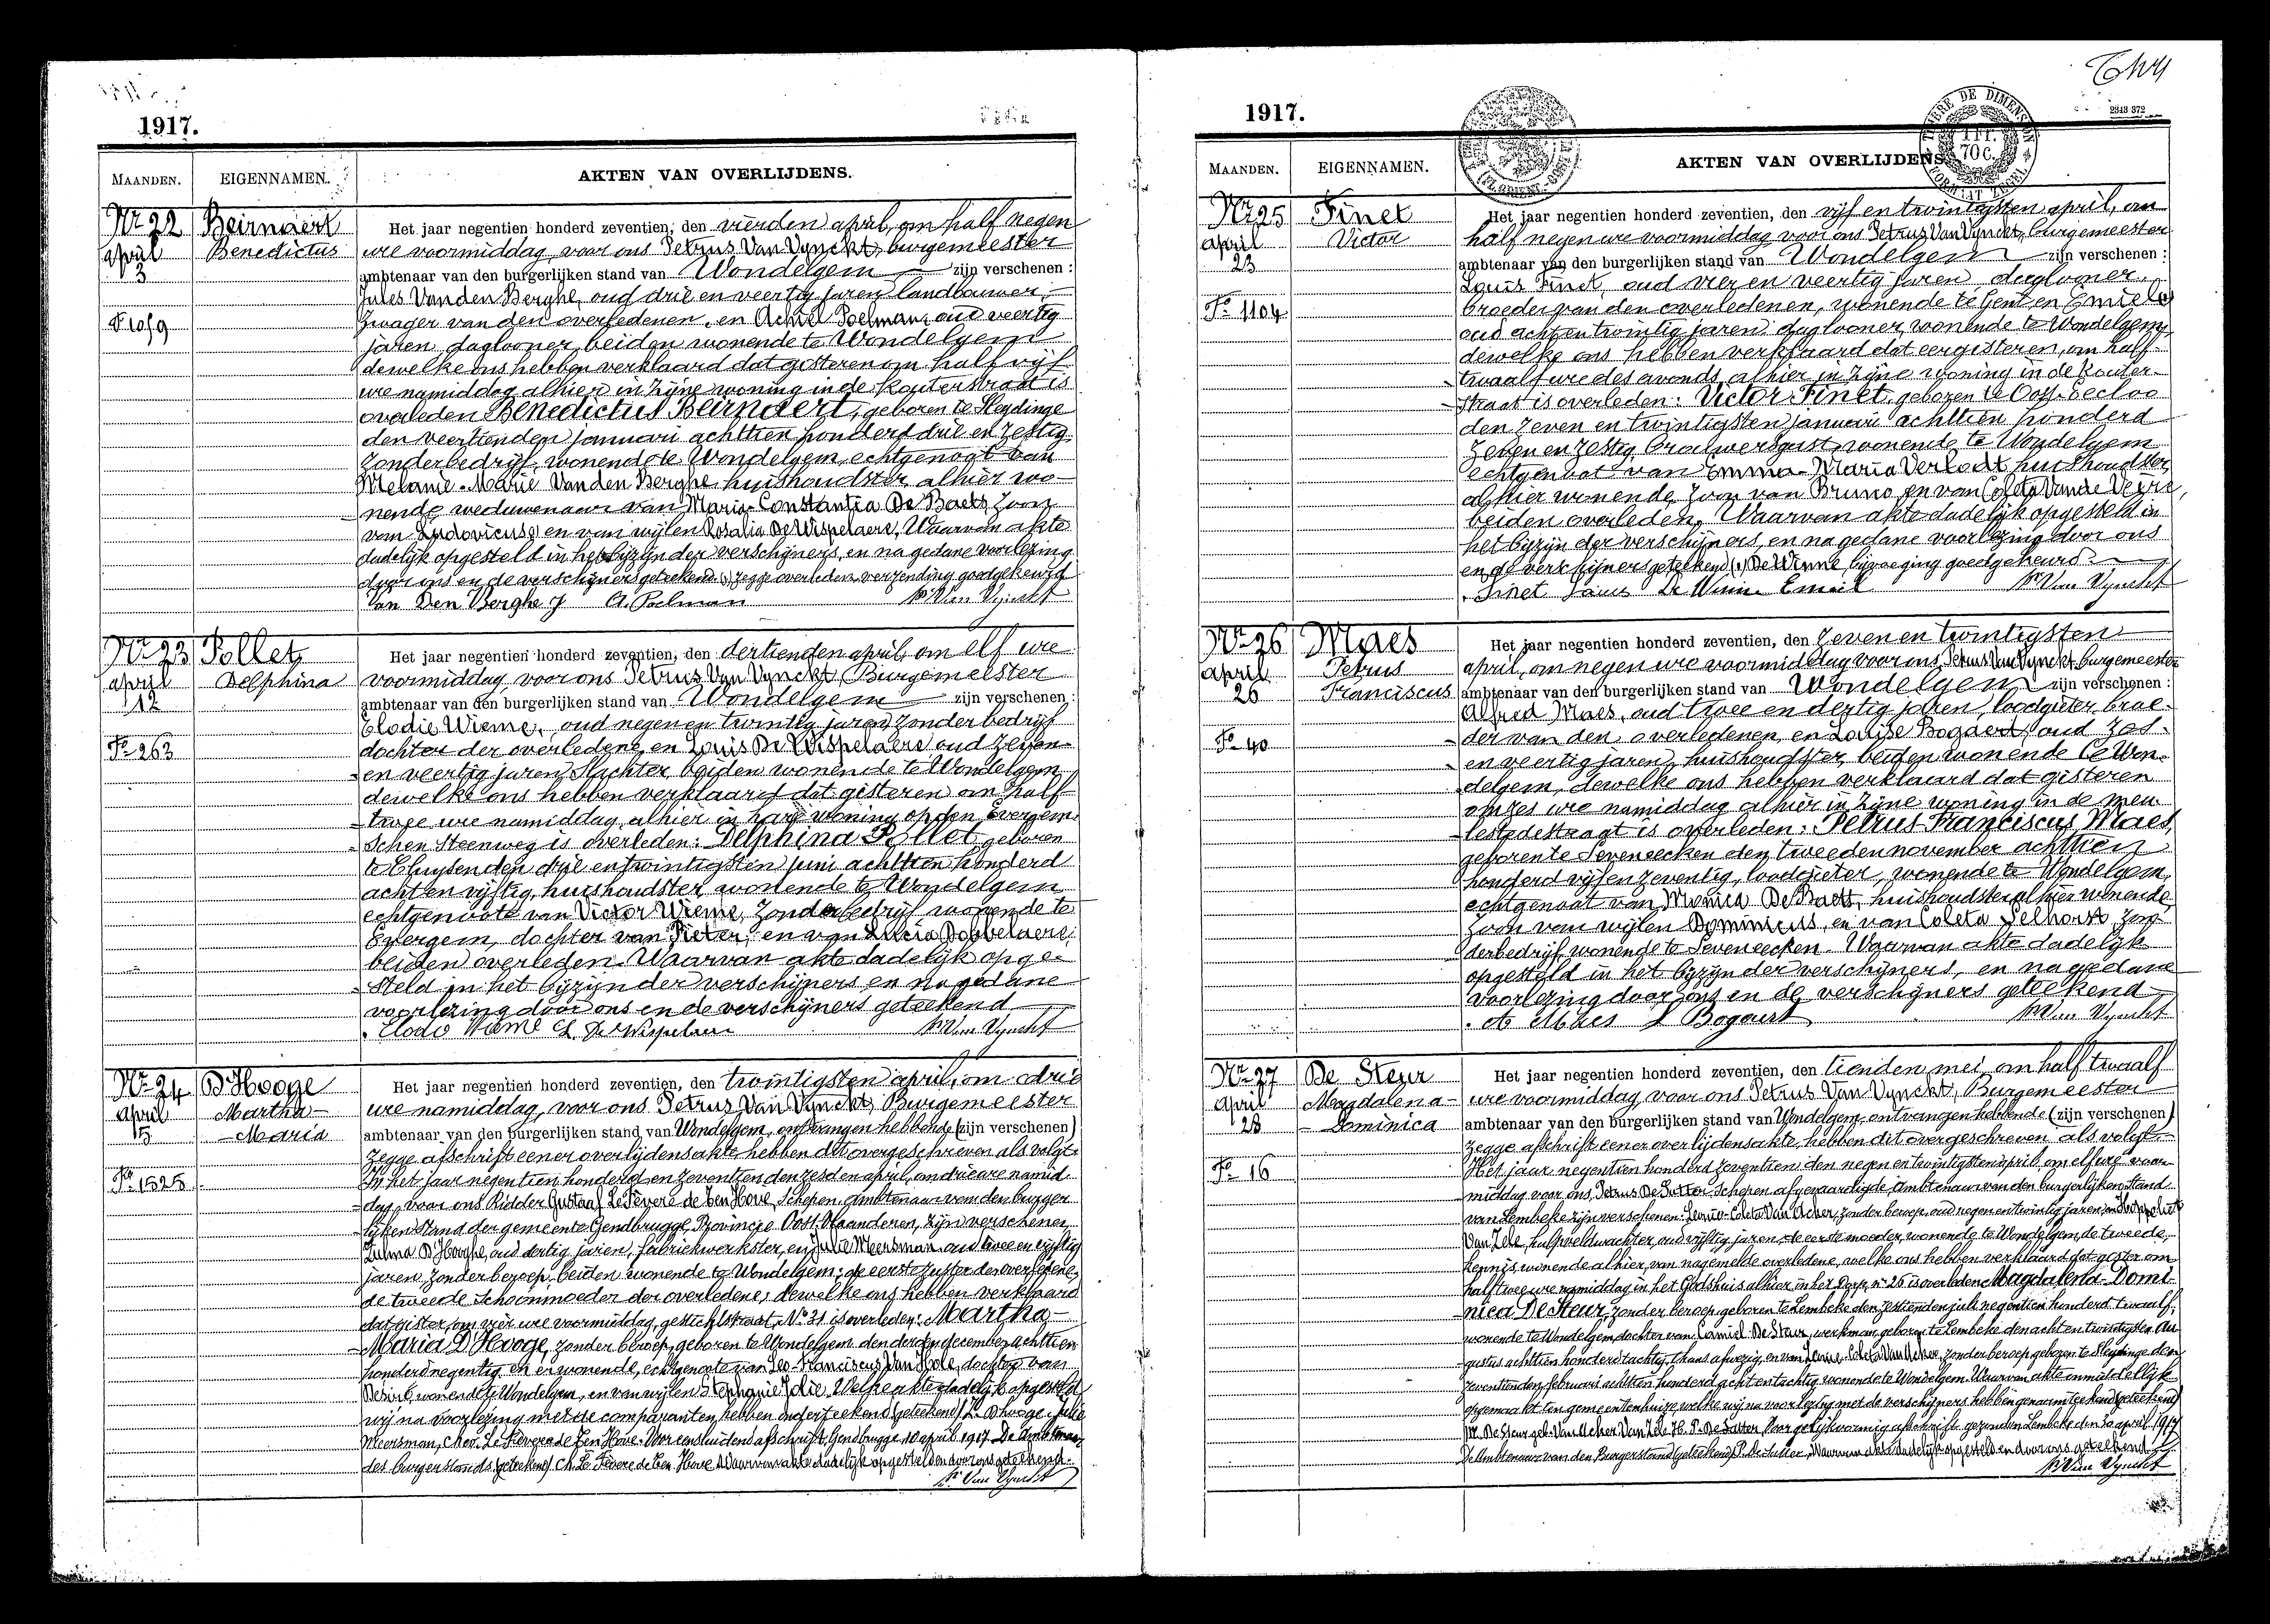 1917.
MAANDEN.
EIGENNAMEN.
AKTEN VAN OVERLIJDENS.
Nr 22
april
3
Fo 1059
Beirnaert
Benedictus
Het jaar negentien honderd zeventien, den vierden april, om half negen
ure voormiddag, voor ons Petrus Van Vynckt, burgemeester
ambtenaar van den burgerlijken stand van Wondelgem zijn verschenen :
Jules Vanden Berghe, oud drie en veertig jaren landbouwer,
zwager van den overledenen, en Achiel Poelman, oud veertig
jaren, daglooner, beiden wonende te Wondelgem
dewelke ons hebben verklaard dat gisteren om half vijf
ure namiddag, alhier in zijne woning in de Kouterstraat is
overleden Benedictus Beirnaert, geboren te Sleydinge
den veertienden januari achttien honderd drie en zestig
zonder bedrijf, wonende te Wondelgem, echtgenoot van
Melanie-Marie Vanden Berghe, huishoudster, alhier wo-
nende, weduwenaar van Maria-Constantia De Baets, zoon
van Ludovicus (1) en van wijlen Rosalia De Wispelaere, Waarvan akte
dadelijk opgesteld in het bijzijn der verschijners, en na gedane voorlezing
door ons en de verschijners geteekend. (1) zegge overleden, verzending goedgekeurd
Van Den Berghe J A. Poelman Pr Van Vynckt
Nr 23
april
12
Fo 263
Pollet
Delphina
Het jaar negentien honderd zeventien, den dertienden april, om elf ure
voormiddag, voor ons Petrus Van Vynckt, Burgemeester
ambtenaar van den burgerlijken stand van Wondelgem zijn verschenen :
Elodie Wieme, oud negen en twintig jaren zonder bedrijf
dochter der overledene, en Louis De Wispelaere oud zeven-
en veertig jaren, Slachter, beiden wonende te Wondelgem
dewelke ons hebben verklaard dat gisteren om half
twee ure namiddag, alhier in hare woning op den Evergem-
schen Steenweg is overleden: Delphina Pollet, geboren
te Cluysen den drie en twintigsten juni achttien honderd
acht en vijftig, huishoudster, wonende te Wondelgem
echtgenoote van Victor Wieme, zonder bedrijf wonende te
Evergem, dochter van Pieter, en van Lucia Dobbelaere,
beiden overleden. Waarvan akte dadelijk opge-
steld in het bijzijn der verschijners en na gedane
voorlezing door ons en de verschijners geteekend
Elodie Wieme L. De Wispelaere Pr Van Vynckt
Nr 24
april
15
Fo 1525
D'Hooge
Martha-
Maria
Het jaar negentien honderd zeventien, den twintigsten april, om drie
ure namiddag, voor ons Petrus Van Vynckt, Burgemeester
ambtenaar van den burgerlijken stand van Wondelgem, ontvangen hebbende (zijn verschenen)
zegge afschrift eener overlijdensakte hebben dit overgeschreven als volgt:
In het jaar negentien honderd en zeventien den zesden april, om drie ure namid-
dag, voor ons Ridder Gustaaf Le Fevere de Ten Hove, Schepen Ambtenaar van den burger-
lijken Stand der gemeente Gendbrugge, Provincie Oost-Vlaanderen, zijn verschenen
Zulma D'Hooghe, oud dertig jaren, fabriekwerkster, en Julie Meersman oud twee en vijftig
jaren, zonder beroep, beiden wonende te Wondelgem; de eerste zuster der overledene,
de tweede Schoonmoeder der overledene; dewelke ons hebben verklaard
dat gister, om vier ure voormiddag, gestichtstraat, No 31 is overleden: Martha-
Maria D'Hooge, zonder beroep, geboren te Wondelgem den derden december achttien
honderd negentig, en er wonende, echtgenoote van Leo-Franciscus Van Hole, dochter van
Desiré, wonende te Wondelgem, en van wijlen Stephanie Jolie. Welke akte dadelijk opgesteld
wij na voorlezing met de comparanten hebben onderteekend (geteekend) Z. D'hooge, Julie
Meersman, Chev. Le Fevere de Ten Hove. Voor eensluidend afschrift, Gendbrugge, 10 april 1917. De Ambtenaar
des burgerstands (geteekend) Ch. Le Fevere de Ten Hove. Waarvan akte dadelijk opgesteld en door ons geteekend.
Pr Van Vynckt
1917.
2343 372
TIMBRE DE DIMENSION
70 C.
FORMAAT ZEGEL
MAANDEN.
EIGENNAMEN.
AKTEN VAN OVERLIJDENS.
Nr 25
april
23
Fo 1104
Finet
Victor
Het jaar negentien honderd zeventien, den vijf en twintigsten april, om
half negen ure voormiddag voor ons Petrus Van Vynckt, burgemeester
ambtenaar van den burgerlijken stand van Wondelgem zijn verschenen :
Louis Finet, oud vier en veertig jaren, daglooner,
broeder van den overledenen, wonende te Gent en Emiel (1)
oud acht en twintig jaren daglooner, wonende te Wondelgem,
dewelke ons hebben verklaard dat eergisteren, om half
twaalf ure des avonds, alhier in zijne woning in de Kouter-
straat is overleden: Victor Finet, geboren te Oost-Eecloo
den zeven en twintigsten januari achttien honderd
zeven en zestig, brouwersgast, wonende te Wondelgem
echtgenoot van Emma-Maria Verlodt huishoudster,
alhier wonende, zoon van Bruno, en van Coleta Vande Veire,
beiden overleden. Waarvan akte dadelijk opgesteld in
het bijzijn der verschijners, en na gedane voorlezing door ons
en de verschijners geteekend (1) De Winne, bijvoeging goedgekeurd
Finet Louis De Winne Emiel Pr Van Vynckt
Nr 26
april
26
Fo 40
Maes
Petrus
Franciscus
Het jaar negentien honderd zeventien, den zeven en twintigsten
april, om negen ure voormiddag voor ons, Petrus Van Vynckt burgemeester
ambtenaar van den burgerlijken stand van Wondelgem zijn verschenen :
Alfred Maes, oud twee en dertig jaren, loodgieter, broe-
der van den overledenen, en Louise Bogaert, oud zes-
en veertig jaren, huishoudster, beiden wonende te Won-
delgem, dewelke ons hebben verklaard dat gisteren
om zes ure namiddag alhier in zijne woning in de meu-
lestedestraat is overleden: Petrus-Franciscus Maes,
geboren te Seveneecken den tweeden november achttien
honderd vijf en zeventig, loodgieter, wonende te Wondelgem,
echtgenoot van Monica De Baets, huishoudster alhier wonende,
zoon van wijlen Dominicus, en van Coleta Selhorst, zon-
derbedrijf wonende te Seveneecken. Waarvan akte dadelijk
opgesteld in het bijzijn der verschijners, en na gedane
voorlezing door ons en de verschijners geteekend
A Maes L Bogaert Pr Van Vynckt
Nr 27
april
28
Fo 16
De Steur
Magdalena-
Dominica
Het jaar negentien honderd zeventien, den tienden mei, om half twaalf
ure voormiddag, voor ons Petrus Van Vynckt, Burgemeester
ambtenaar van den burgerlijken stand van Wondelgem, ontvangen hebbende (zijn verschenen)
zegge afschrift eener overlijdensakte, hebben dit overgeschreven als volgt
Het jaar negentien honderd zeventien den negen en twintigsten april, om elf ure voor-
middag voor ons, Petrus De Sutter Schepen afgevaardigde, Ambtenaar van den burgerlijken Stand
van Lembeke zijn verschenen: Leonie-Coleta Van Acker, zonder beroep, oud negen en twintig jaren, en Hippoliet
Van Zele, hulpveldwachter, oud vijftig jaren, de eerste moeder, wonende te Wondelgem, de tweede,
kennis wonende alhier, van nagemelde overledene, welke ons hebben verklaard dat gister om
half twee ure namiddag in het Godshuis alhier, in het Dorp, nr 26 is overleden Magdalena-Domi-
nica De Steur, zonder beroep, geboren te Lembeke den zestienden juli negentien honderd twaalf,
wonende te Wondelgem, dochter van Camiel De Steur, werkman, geboren te Lembeke den acht en twintigsten au-
gustus achttien honderd tachtig, thans afwezig, en van Leonie-Coleta Van Acker, zonder beroep geboren te Sleydinge den
zeventienden februari achttien honderd acht en tachtig, wonende te Wondelgem. Waarvan akte onmiddellijk
opgemaakt ten gemeentenhuize, welke wij na voorlezing met de verschijners hebben genaamteekend (geteekend)
De Steur geb. Van Acker, Van Zele H. P. De Sutter. Voor gelijkvormig afschrift gezonden Lembeke den 30 april 1917
De Ambtenaar van den Burgerstand (geteekend) P. De Sutter, Waarvan akte dadelijk opgesteld en door ons geteekend
Pr Van Vynckt